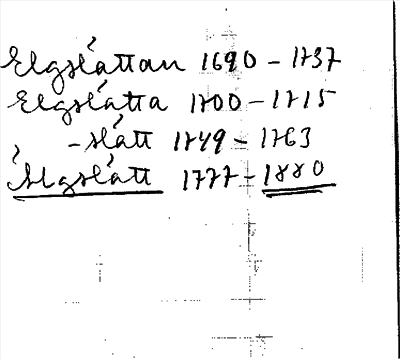 Elgslåttan 1690 – 1737
Elgslåtta 1700 – 1715
– slått 1749 – 1763
Ålgslått 1777 – 1880